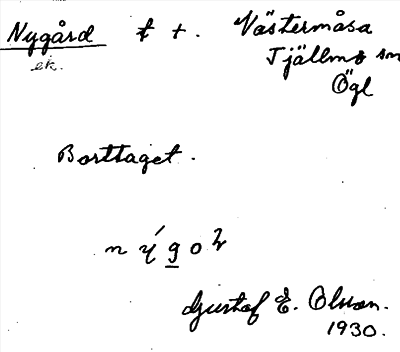 Nygård t +. Västermåsa
ek. Tjällmo sn
Ögl
Borttaget.
Gustaf E. Olsson.
1930.